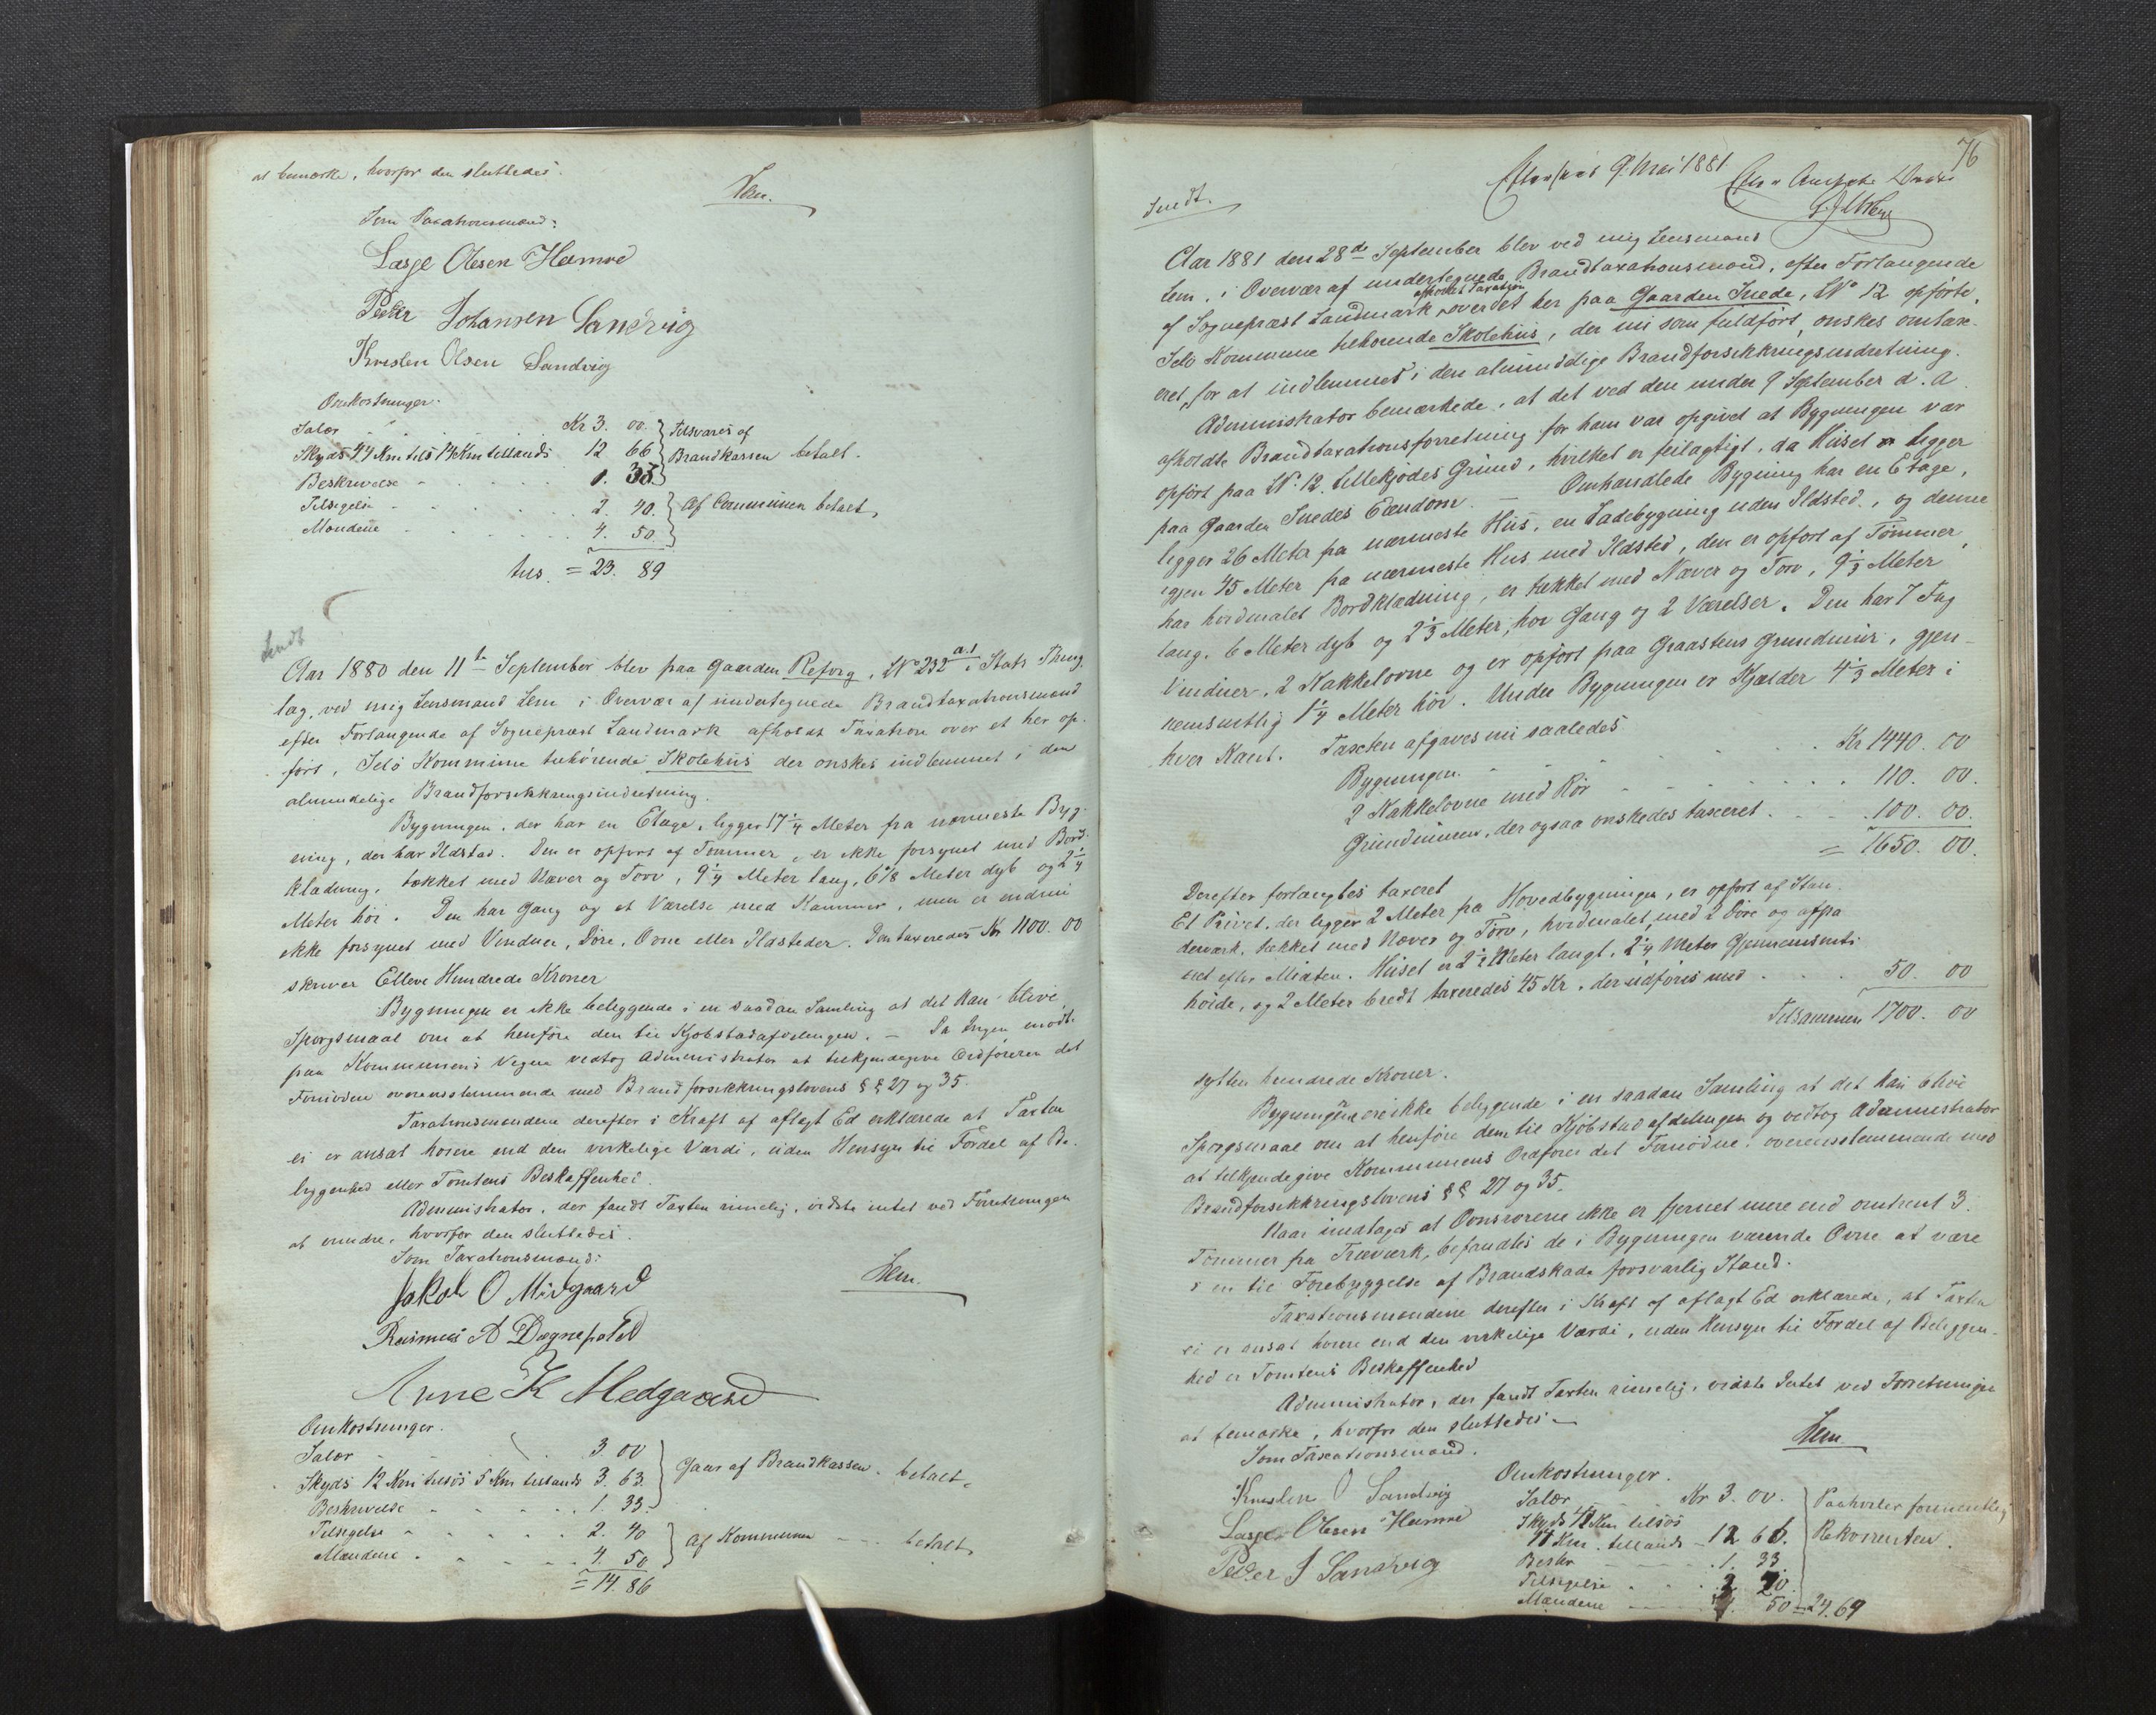 at bemærke, hvorfor den sluttedes.
Lem.
Som Taxationsmænd:
Lasse Olesen Hamre
Peder Johansen Sandvig
Knudsen Olsen Sandvig
Omkostninger:
Salær Kr 3. 00.
Skyds 44 Km tilsøs 14 Km tillands 12 66
Beskrivelse 1. 33
Tilsvares af
Brandkassen betalt.
Tilsigelse 2. 40.
Mændene 4. 50
Af Communen betalt,
tils. = 23. 89
sendt
Aar 1880 den 11te September blev paa Gaarden Refvig, No 232 a.1 i Stats Thing-
lag, ved mig Lensmand Lem i Overvær af undertegnede Brandtaxationsmænd
efter Forlangende af Sognepræst Landmark afholdt Taxation over et her op-
ført, Selø Kommune tilhørende Skolehus der ønskes indlemmet i den
almindelige Brandforsikkringsindretning.
Bygningen, der har en Etage, ligger 17 1/4 Meter fra nærmeste Byg-
ning, der har Ildsted. Den er opført af Tømmer, er ikke forsynet med Bord-
klædning, tækket med Næver og Torv, 9 1/4 Meter lang, 6 1/8 Meter dyb og 2 1/4
Meter høi. Den har Gang og et Værelse med Kammer, men er endnu
ikke forsynet med Vinduer, Døre, Ovne eller Ildsteder. Den taxeredes Kr 1100. 00
skriver Elleve Hundrede Kroner
Bygningen er ikke beliggende i en saadan Samling at det kan blive
Spørgsmaal om at henføre den til Kjøbstadafdelingen. – Da Ingen mødte
paa Kommunens Vegne vedtog Administrator at tilkjendegive Ordføreren det
Fornødne overensstemmende med Brandforsikkringslovens §§ 27 og 35.
Taxationsmændene derefter i Kraft af aflagt Ed erklærede at Taxten
ei er ansat høiere end den virkelige Værdi, uden Hensyn til Fordel af Be-
liggenhed eller Tomtens Beskaffenhed.
Administrator, der fandt Taxten rimelig, vidste intet ved Forretningen
at erindre, hvorfor den sluttedes.
Som Taxationsmænd:
Lem.
Jakob O Midgaard
Rasmus A
Arne K Medgaard
Omkostninger.
Salær 3 00
Skyds 12 Km tilsøs 5 Km tillands 3. 63.
Beskrivelse 1. 33
Gaar af Brandkassen. betalt.
Tilsigelse 2. 40
Mændene 4. 50
Af Kommunen betalt
= 14. 86
76
9. Mai 1881
Sendt.
Aar 1881 den 28de September blev ved mig Lensmand
Lem, i Overvær af undertegnede Brandtaxationsmænd, efter Forlangende
af Sognepræst Landmark afholdt Taxation over det her paa Gaarden Snede, No 12 opførte,
Selø Kommune tilhørende Skolehus, der nu som fuldført, ønskes omtaxe-
ret, for at indlemmes i den almindelige Brandforsikkringsindretning.
Administrator bemærkede, at det ved den under 9 September d. A
afholdte Brandtaxationsforretning for ham var opgivet at Bygningen var
opført paa No 12. tillekjødes Grund, hvilket er feilagtigt, da Huset ligger
paa Gaarden Snedes Eiendom. – Omhandlede Bygning har en Etage,
ligger 26 Meter fra nærmeste Hus, en Ladebygning uden Ildsted, og denne
igjen 45 Meter fra nærmeste Hus med Ildsted, den er opført af Tømmer,
har hvidmalet Bordklædning, er tækket med Næver og Torv, 9 1/3 Meter
lang, 6 Meter dyb og 2 1/3 Meter høi, har Gang og 2 Værelser. Den har 7 Fag
Vinduer, 2 Kakkelovne og er opført paa Graastens Grundmur, gjen-
nemsnitlig 1 1/4 Meter høi. Under Bygningen er Kjælder 4 1/3 Meter i
hver Kant. Taxten afgaves nu saaledes
Bygningen Kr 1440. 00
2 Kakkelovne med Rør 110. 00.
Grundmuren, der ogsaa ønskedes taxeret 100. 00.
= 1650. 00.
Derefter forlangtes taxeret
Et Privet, der ligger 2 Meter fra Hovedbygningen, er opført af Stan-
derværk, tækket med Næver og Torv, hvidmalet, med 2 Døre og
Huset er 2 1/2 Meter langt, 2 1/4 Meter Gjennemsnits-
høide, og 2 Meter bredt taxeredes 45 Kr. der udføres med 50. 00
Tilsammen 1700. 00
sytten hundrede Kroner.
Bygningerne ere ikke beliggende i en saadan Samling at det kan blive
Spørgsmaal om at henføre dem til Kjøbstadafdelingen og vedtog Administrator
at tilkjendegive Kommunens Ordfører det Fornødne, overensstemmende med
Brandforsikkringslovens §§ 27 og 35.
Naar undtages at Ovnsrørene ikke er fjernet mere end omtrent 3.
Tommer fra Træværk, befandtes de i Bygningen værende Ovne at være
i en til Forebyggelse af Brandskade forsvarlig Stand.
Taxationsmændene derefter i Kraft af aflagt Ed erklærede, at Taxten
ei er ansat høiere end den virkelige Værdi, uden Hensyn til Fordel af Beliggen-
hed er Tomtens Beskaffenhed
Administrator, der fandt Taxten rimelig, vidste Intet ved Forretningen
at bemærke, hvorfor den sluttedes –
Som Taxationsmænd.
Lem
Knudsen O Sandvig
Lasse Olsen Hamre
Peder J Sandvig
Omkostninger.
Salær Kr 3. 00.
Skyds 44 Km tilsøs
14 Km. tillands – 12 66.
Beskr 1. 33
Tilsigelse 20.
Mændene 50 = 24.69
Paahviler formentlig
Rekvirenten.